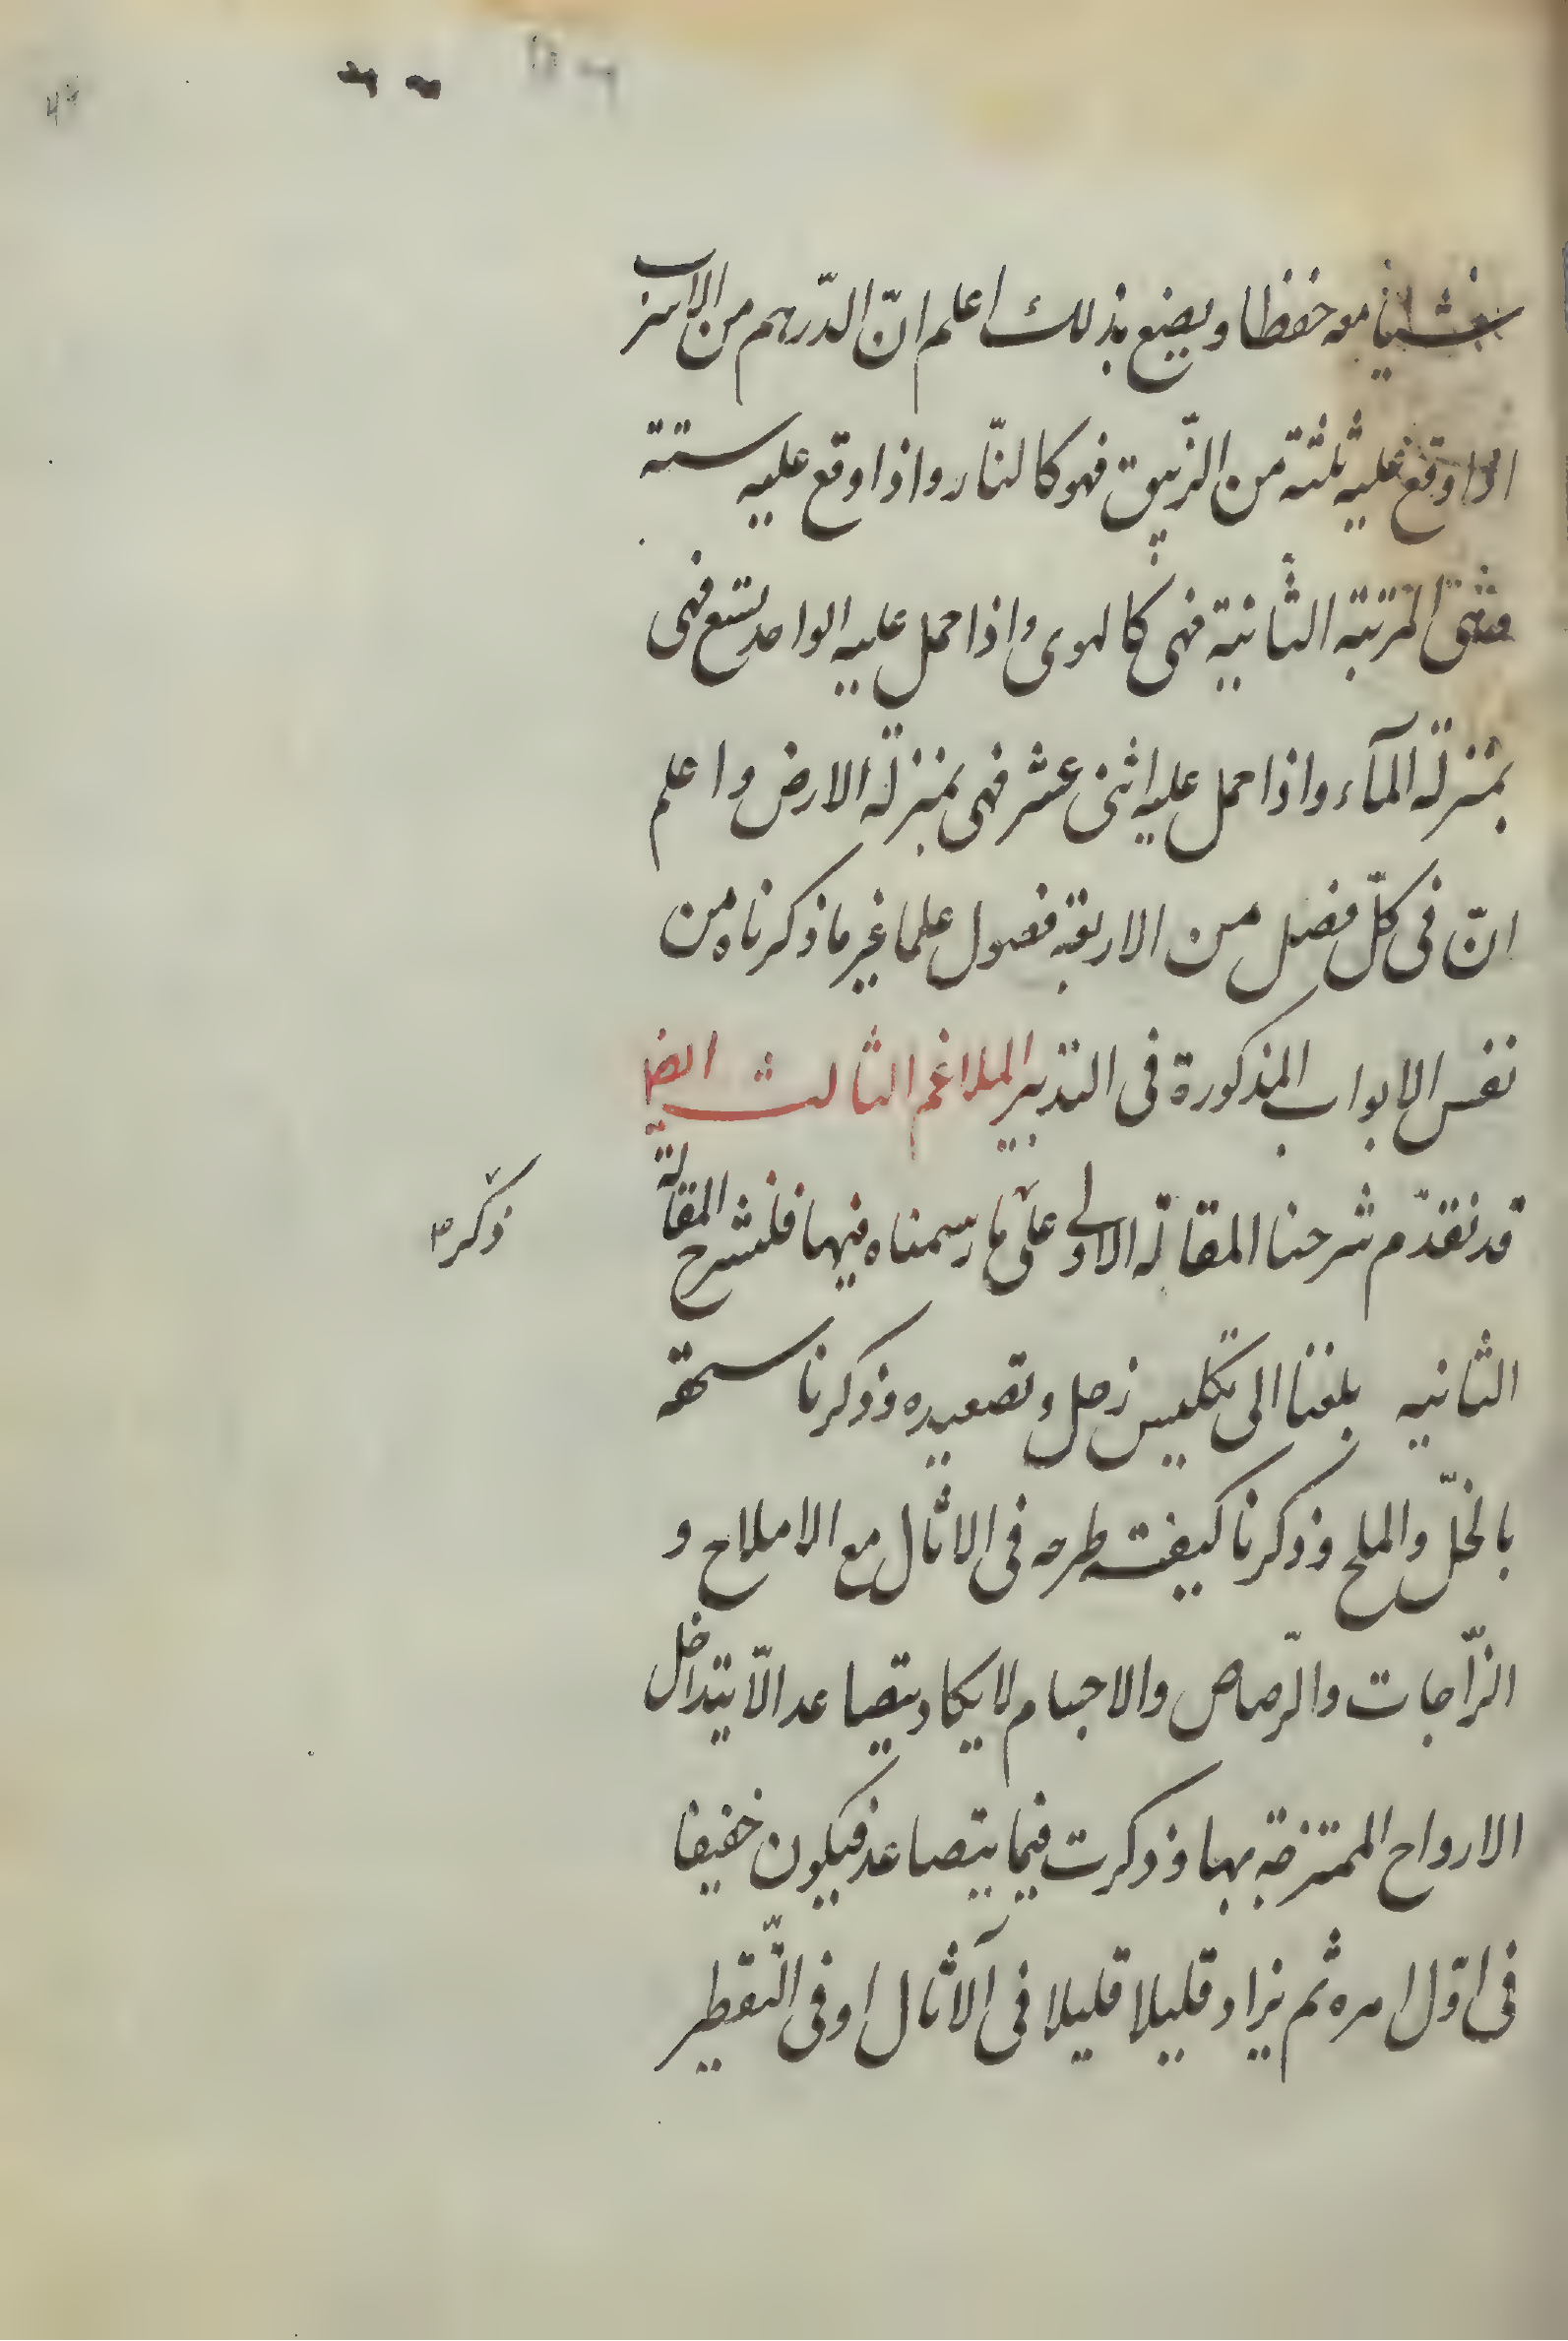 معه خفظا ويضع بذلك اعلم انّ الدّرهم من الاسرب
اذا وقع عليه ثلثة من الزّيبق فهو كالنّار واذا وقع عليه ستة
المرتبة الثانية فهى كالهوى واذا حمل عليه الواحد تسع فهى
بمنزلة المآء واذا حمل عليه اثنى عشر فهى بمنزلة الارض واعلم
انّ فى كلّ فصل من الاربعة فصول علما غير ما ذكرناه من
نفس الابواب المذكورة فى التدبير الملاغم الثالث ايضا
قد تقدّم شرحنا المقالة الاولى على ما رسمناه فيها فلنشرح المقالة
ذكر
الثانيه بلغنا الى تكليس زحل وتصعيده وذكرنا سحقه
بالخلّ والملح وذكرنا كيفته طرحه فى الاثال مع الاملاح و
الزّاجات والرّصاص والاجسام لا يكاد يتصاعد الاّ بتداخل
الارواح الممتزجة بها وذكرت فيما يتصاعد فيكون خفيفا
فى اوّل امره ثم يزاد قليلا قليلا فى الآثال او فى التّقطير